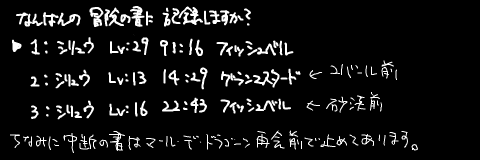 なんばんの 冒険の書に 記録しますか?
▶ 1: シリュウ Lv:29 91:16 フィッシュベル
2: シリュウ Lv:13 14:29 グランエスタード ← コパール前
3: シリュウ Lv:16 22:43 フィッシュベル ← 砂浜前
ちなみに中断の書はマール・デ・ドラゴーン再会前で止めてあります。